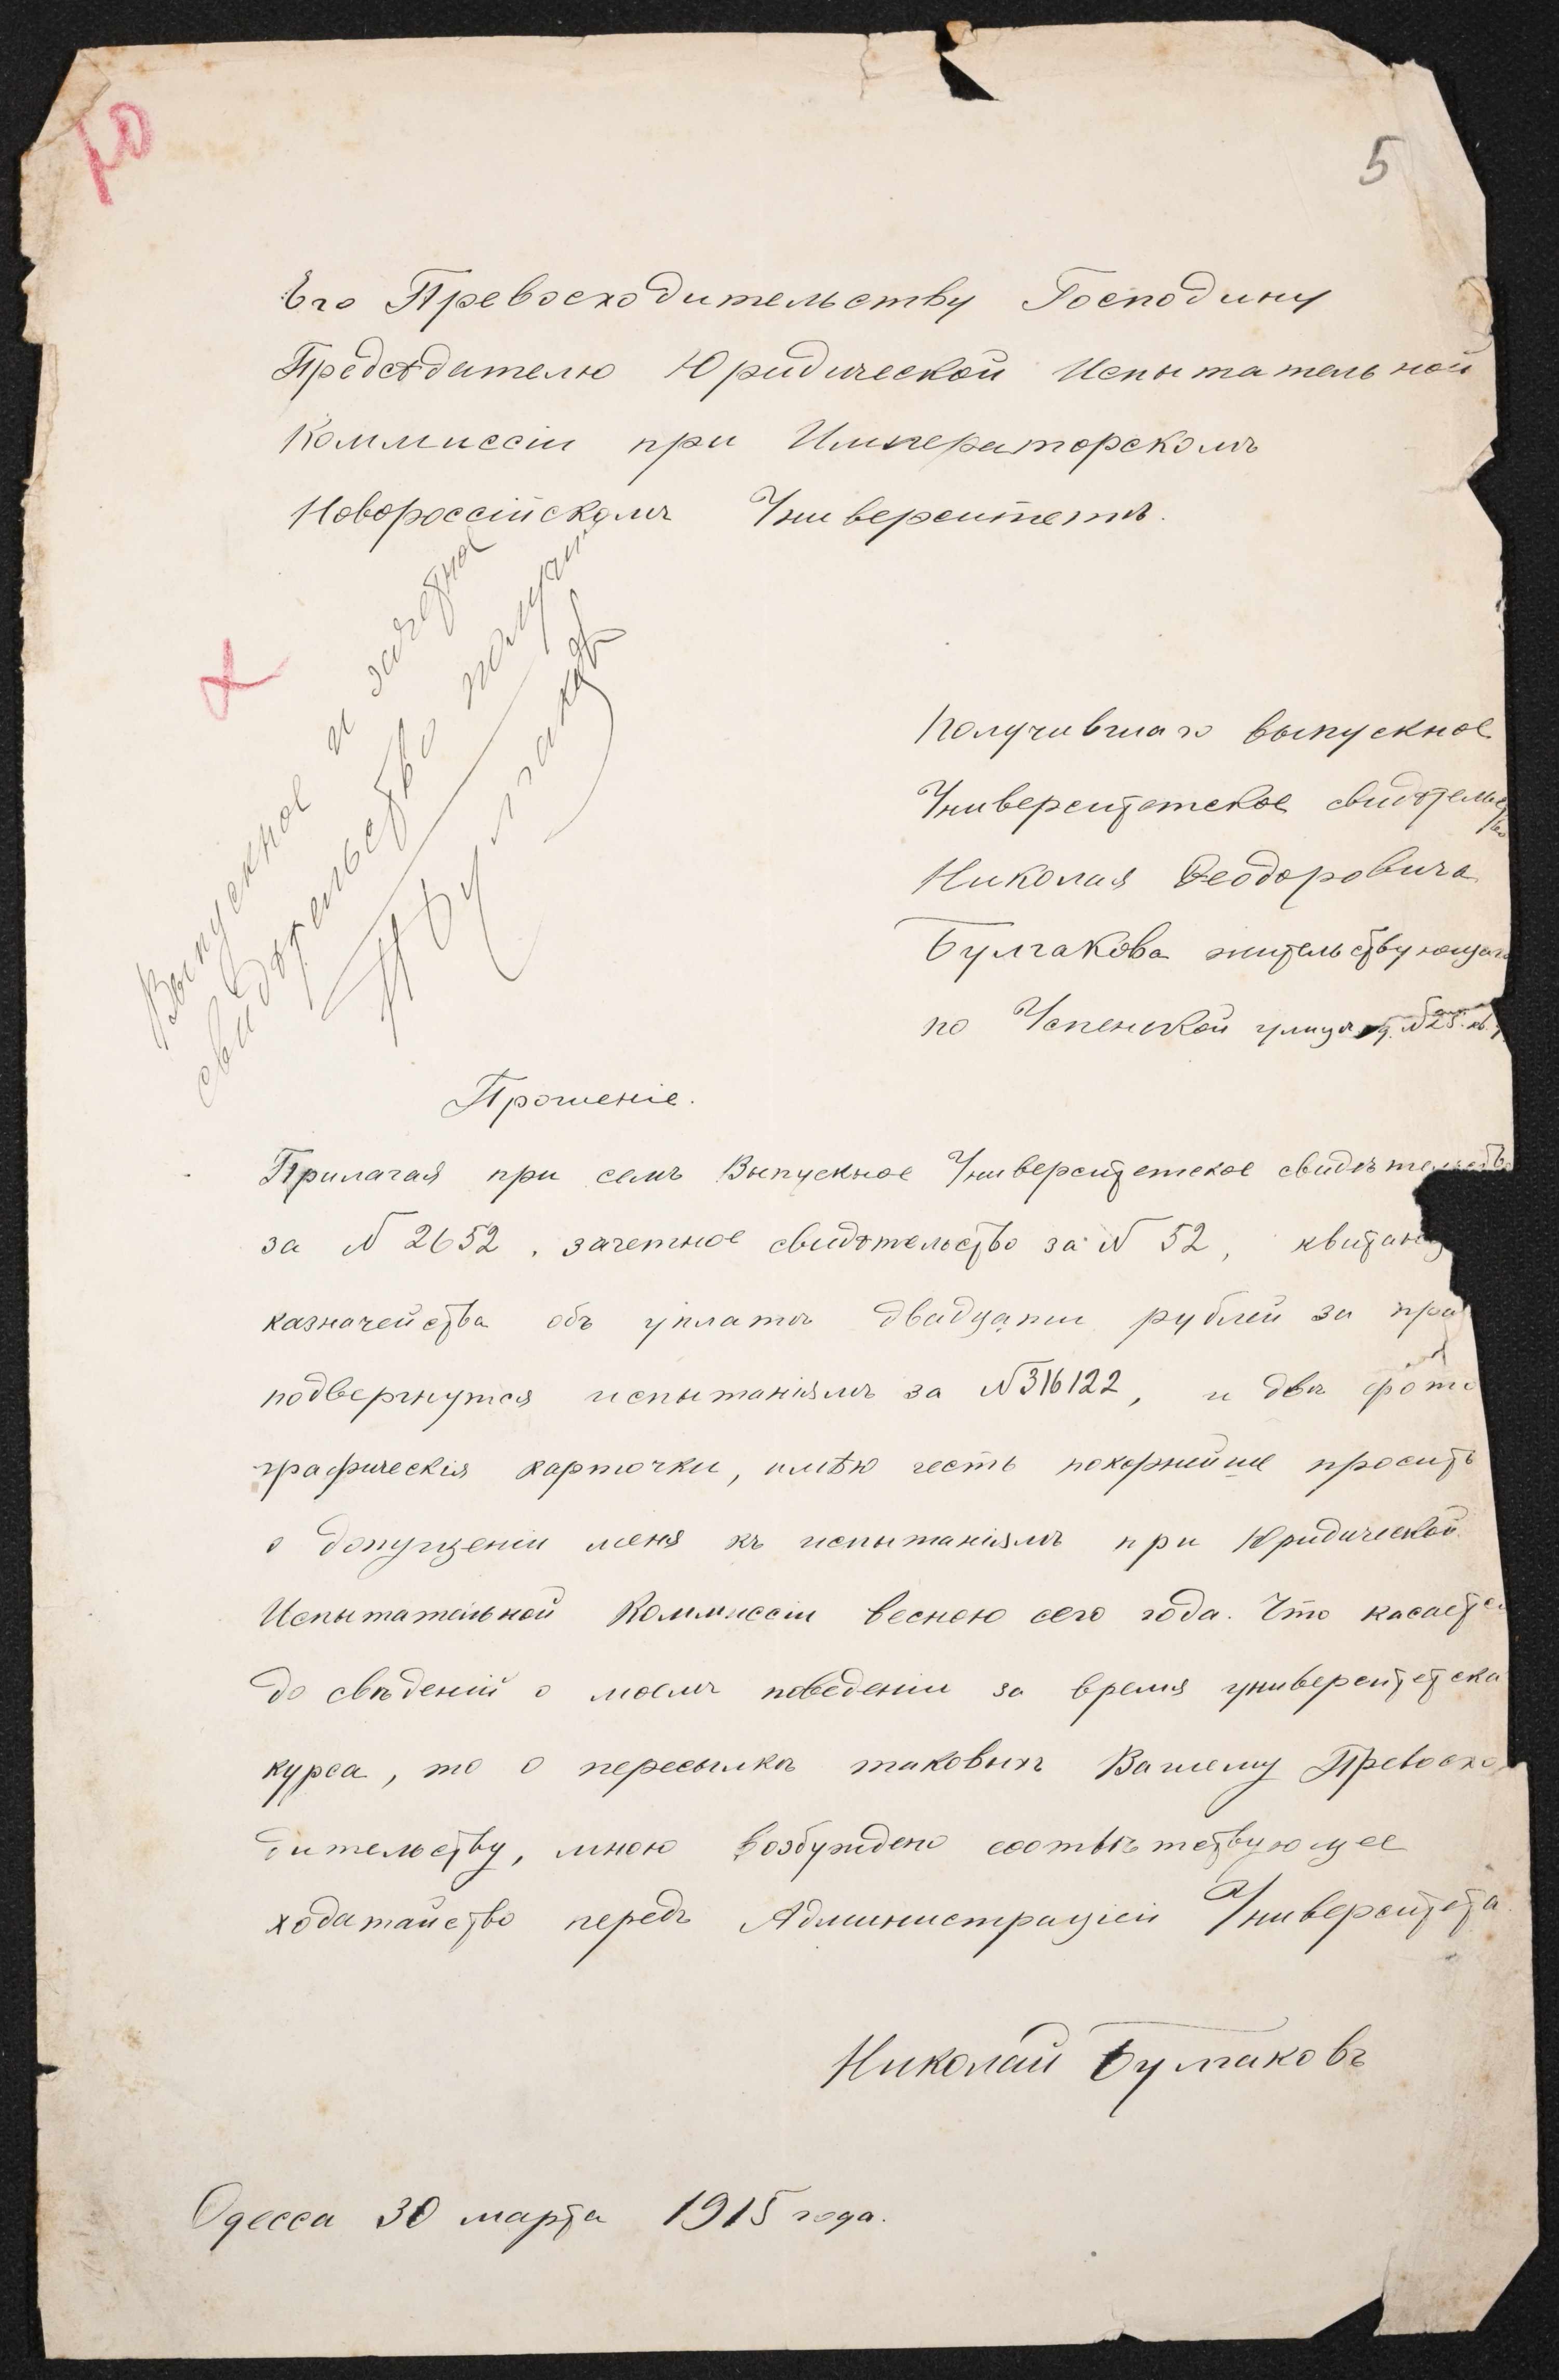 10
5
Его Превосходительству Господину
Предсѣдателю Юридической Испытательной
Коммиссіи при Императорскомъ
Новороссійскомъ Университетѣ.
Выпускное и зачетное
свидѣтельство получилъ
НБулгаковъ
Получившаго выпускное
Университетское свидѣтельство
Николая Ѳеодоровича
Булгакова жительствующаго
по Успенской улицѣ д. №25. кв.
Прошеніе.
Прилагая при семъ Выпускное Университетское свидѣтельство
за № 2652, зачетное свидѣтельство за № 52, квитанц
казначейства объ уплатѣ двадцати рублей за пра
подвергнутся испытаніямъ за №316122, и двѣ фото
графическія карточки, имѣю честь покорнѣйше просить
о допущеніи меня къ испытаніямъ при Юридической
Испытательной Коммиссіи весною сего года. Что касается
до свѣденій о моемъ поведеніи за время университетска
курса, то о пересылкѣ таковыхъ Вашему Превосхо
дительству, мною возбуждено соотвѣтствующее
ходатайство передъ Администраціей Университета.
Николай Булгаковъ
Одесса 30 марта 1915 года.